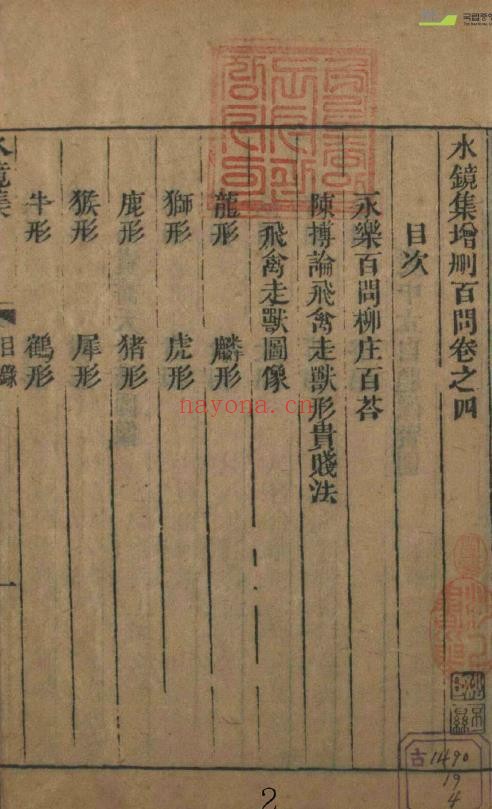 水鏡集增刪百問卷之四
目次
永樂百問柳庄百荅
陳摶論飛禽走獸形貴賤法
飛禽走獸圖像
龍形　麟形
獅形　虎形
鹿形　猪形
猴形　犀形
牛形　鶴形
水鏡集　目錄　一
hayona.cn
古1490
19
4
2